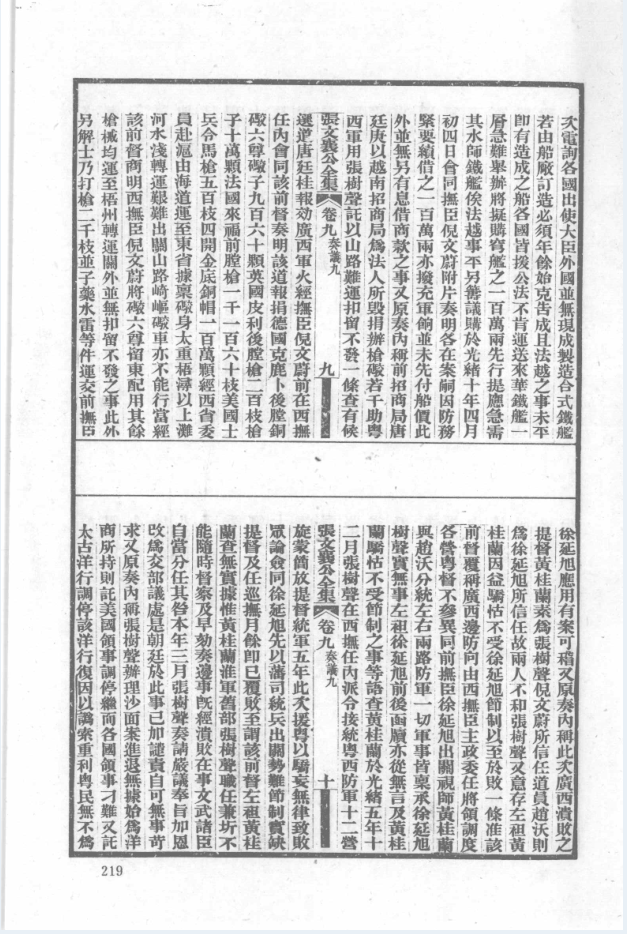 次電詢各國出使大臣外國並無現成製造合式鐵艦
若由船廠訂造必須年餘始克告成且法越之事未平
卽有造成之船各國皆援公法不肯運送來華鐵艦一
層急難舉辦將擬購穹艦之一百萬兩先行提應急需
其水師鐵艦俟法越事平另籌議購於光緒十年四月
初四日會同撫臣倪文蔚附片奏明各在案嗣因防務
緊要續借之一百萬兩亦撥充軍餉並未先付船價此
外並無另有息借商款之事又原奏內稱前招商局唐
廷庚以越南招商局爲法人所毀捐辦槍礮若干助粵
西軍用張樹聲託以山路難運扣留不發一條查有候
張文襄公全集 卷九 奏議九 九
選道唐廷桂報効廣西軍火經撫臣倪文蔚前在西撫
任內會同該前督奏明該道報捐德國克鹿卜後膛銅
礮六尊礮子九百六十顆英國皮利後膛槍二百枝槍
子十萬顆法國來福前膛槍一千一百六十枝美國士
兵令馬槍五百枝四開金底銅帽一百萬顆經西省委
員赴滬由海道運至東省據稟礮身太重梧潯以上灘
河水淺轉運艱難出關山路崎嶇礮車亦不能行當經
該前督商明西撫臣倪文蔚將礮六尊留東配用其餘
槍械均運至梧州轉運關外並無扣留不發之事此外
另解士乃打槍二千枝並子藥水雷等件運交前撫臣
徐延旭應用有案可稽又原奏內稱此次廣西潰敗之
提督黃桂蘭素爲張樹聲倪文蔚所信任道員趙沃則
爲徐延旭所信任故兩人不和張樹聲又意存左袒黃
桂蘭因益驕怙不受徐延旭節制以至於敗一條准該
前督覆稱廣西邊防向由西撫臣主政委任將領調度
各營粵督不參異同前撫臣徐延旭出關視師黃桂蘭
與趙沃分統左右兩路防軍一切軍事皆稟承徐延旭
樹聲實無事左袒徐延旭前後函牘亦從無言及黃桂
蘭驕怙不受節制之事等語查黃桂蘭於光緒五年十
二月張樹聲在西撫任內派令接統粵西防軍十二營
張文襄公全集 卷九 奏議九 十
旋蒙簡放提督統軍五年此次援粵以驕妄無律致敗
眾論僉同徐延旭先以藩司統兵出關勢難節制實缺
提督及任巡撫月餘卽已覆敗至謂該前督左袒黃桂
蘭查無實據惟黃桂蘭淮軍舊部張樹聲職任兼圻不
能隨時督察及早劾奏邊事旣經潰敗在事文武諸臣
自當分任其咎本年三月張樹聲奏請嚴議奉旨加恩
改爲交部議處是朝廷於此事已加譴責自可無事苛
求又原奏內稱張樹聲辦理沙面案進退無據始爲洋
商所持則託美國領事調停繼而各國領事刁難又託
太古洋行調停該洋行復因以譌索重利粵民無不爲
219